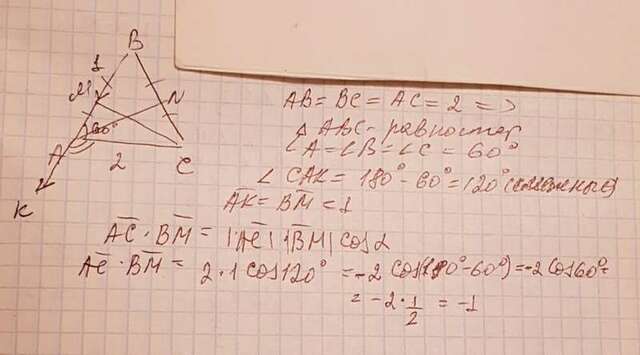 B
1
M
N
60°
A
2
C
K
AB = BC = AC = 2 =>
Δ ABC - равностор
∠A = ∠B = ∠C = 60°
∠ CAK = 180° - 60° = 120° (смежные)
AK = BM = 1
AC · BM = |AC| |BM| cos α
AC · BM = 2 · 1 cos 120° = -2 cos(180° - 60°) = -2 cos 60° =
= -2 · 1/2 = -1